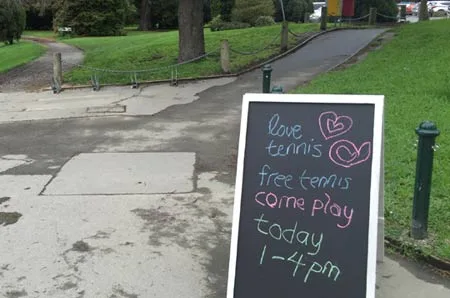 love
tennis
free tennis
come play
today
1-4pm